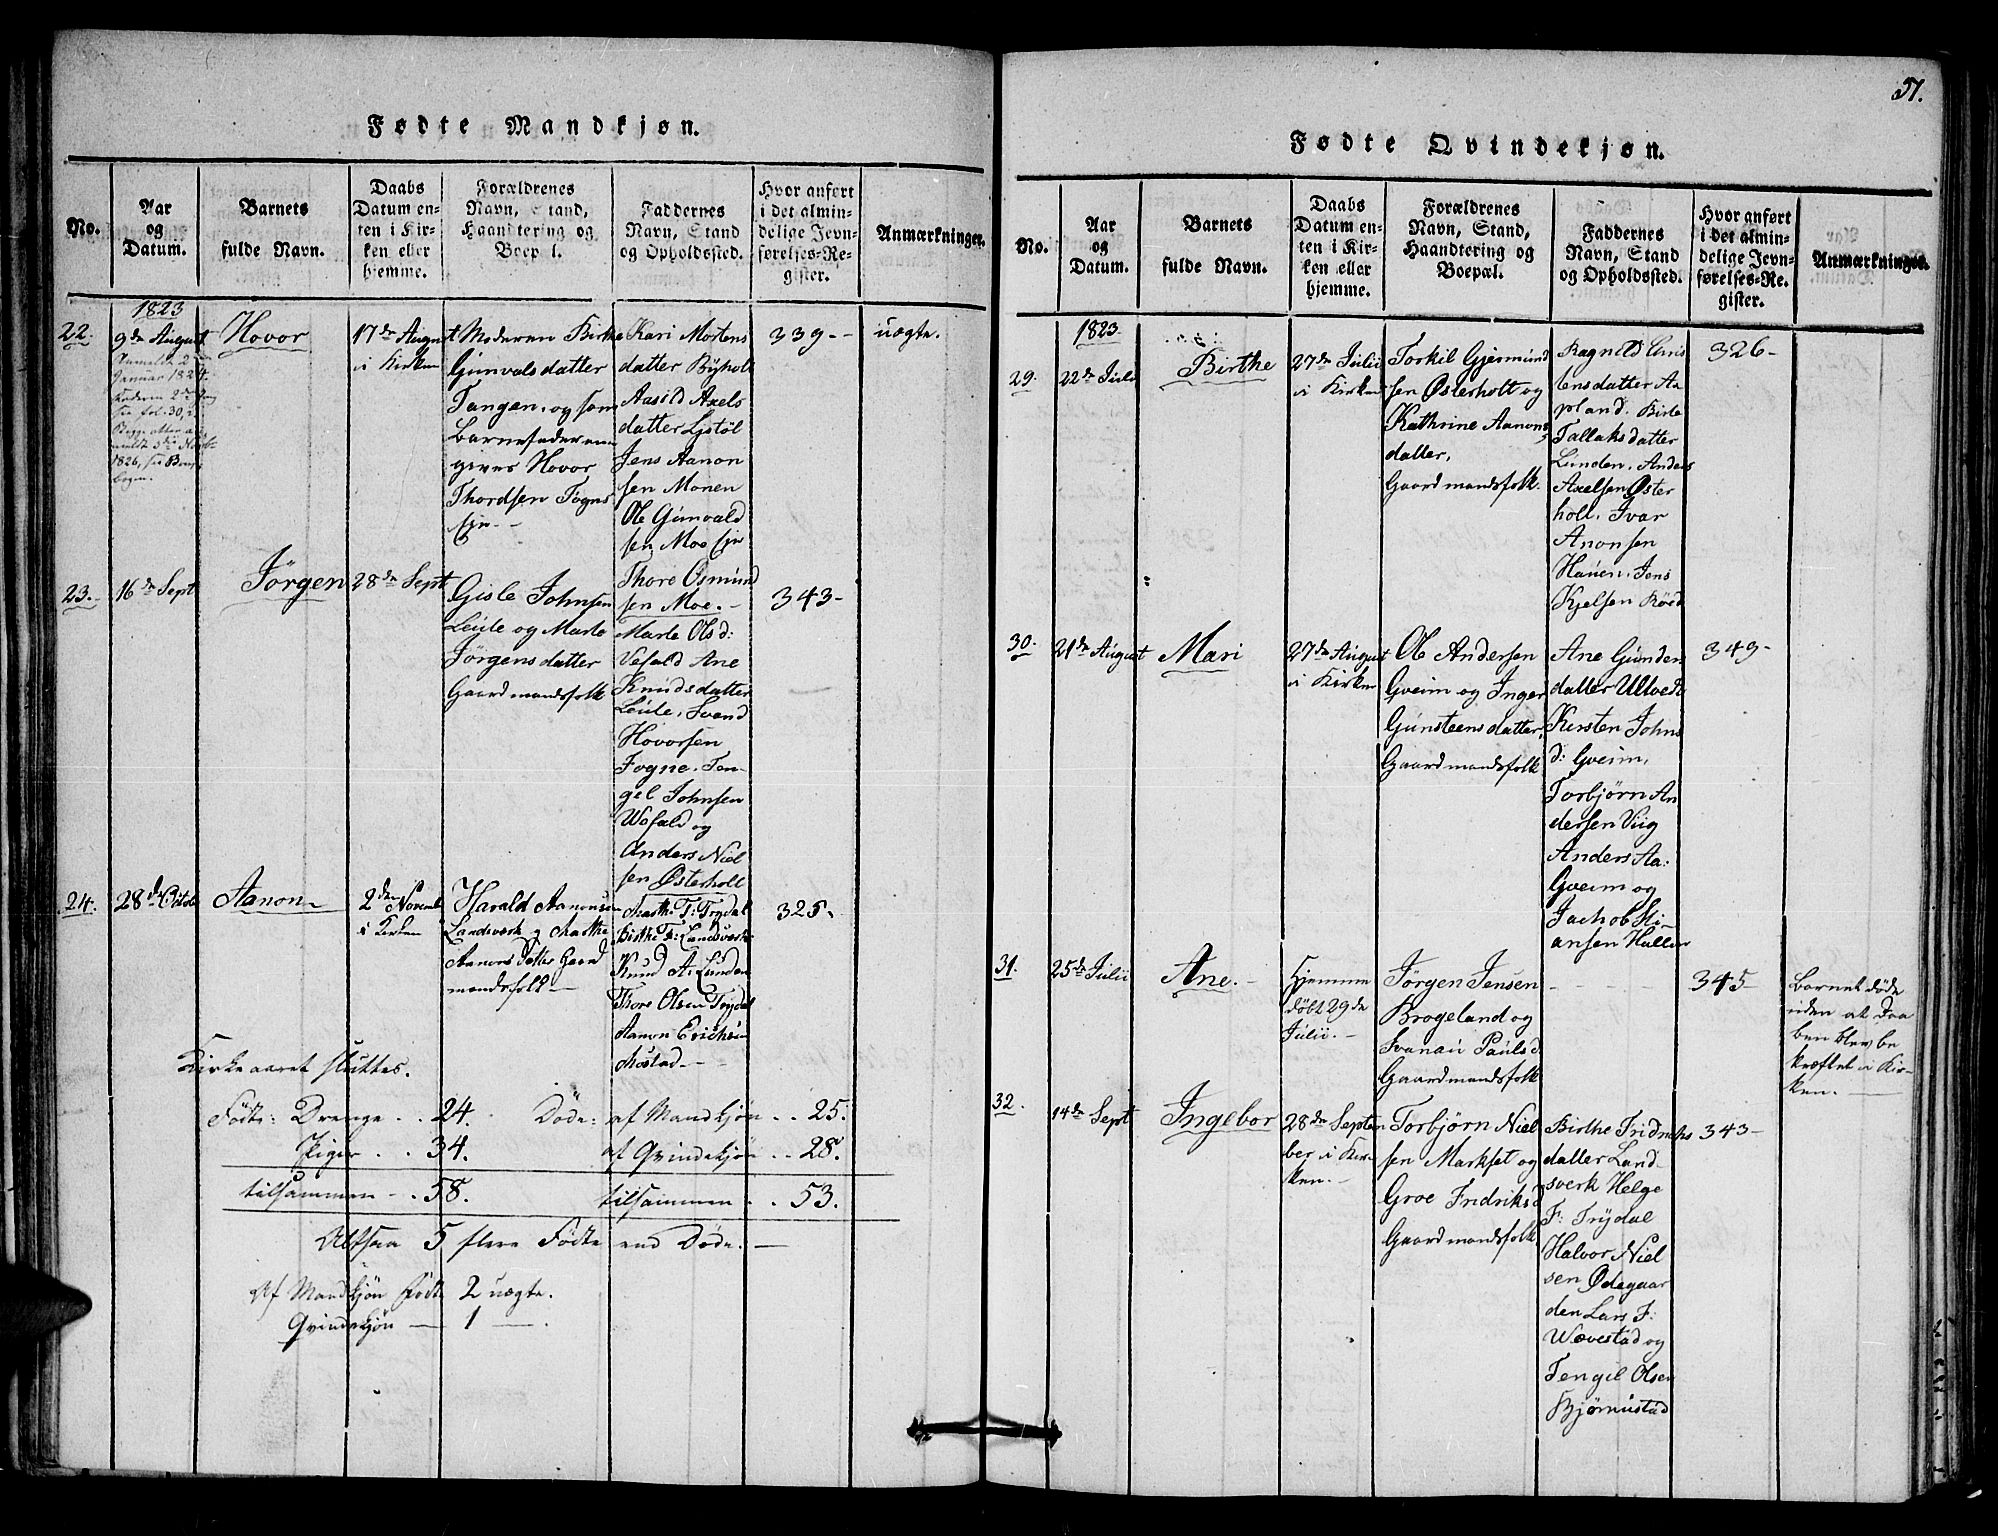 Fødte Mandkjøn.
No.
Aar
og
Datum.
Barnets
fulde Navn.
Daabs
Datum en-
ten i Kir-
ken eller
hjemme.
Forældrenes
Navn, Stand,
Haandtering og
Boep l.
Faddernes
Navn, Stand
og Opholdssted.
Hvor anført
i det almin-
delige Jevn-
førelses-Re-
gister.
Anmærkninger.
1823
22.
9de August
Januar 1824.
1826, see
Hovor
17de August
i Kirken
Moderen Birthe
Gunvalsdatter
Tangen, og som
Barnefader an
gives Hovor
Thordsen Fogne
ejn.
Kari Mortens
datter Byholt
Aasild Axels
datter Lystøl
Jens Aanon
sen Monen
Ole Gunvald
sen Moe ejn
Thore Osmund
sen Moe.
339-
uægte.
23.
16de Sept
Jörgen
28de Sept
Gisle Johnsen
Leule og Marte
Jörgensdatter
Gaardmandsfolk
Marte Olsd:
Vefald Ane
Knudsdatter
Leule, Svend
Hovorsen
Fogne, Ten-
gel Johnsen
Wefald og
Anders Niel
sen Østerholt
343-
24.
28de Octob
Aanon
2den Novemb
i Kirken
Harald Aanonsen
Landsverk og Marthe
Aanonsdatter Gaard
mandsfolk
Marthe T: Trydal
Birthe F: Landsverk
Knud A: Lunden
Thore Olsen Trydal
Aanon Erichsen
Mostad
325.
Kirkeaaret sluttes.
Födte: Drenge . . 24. Döde: af Mandkjön . . 25.
Piger . . 34. af Qvindekjön . . 28.
tilsammen . . 58. tilsammen . . 53.
Altsaa 5 flere Födte end Döde.
Af Mandkjön Födte 2 uægte.
Qvindekjön — 1 —
51.
Fødte Qvindekjøn.
No.
Aar
og
Datum.
Barnets
fulde Navn.
Daabs
Datum en-
ten i Kir-
ken eller
hjemme.
Forældrenes
Navn, Stand,
Haandtering og
Boepæl.
Faddernes
Navn, Stand
og Opholdssted.
Hvor anført
i det almin-
delige Jevn-
førelses-Re-
gister.
Anmærkninger.
1823.
29.
22de Juli
Birthe
27de Julii
i Kirken
Torkil Gjermund
sen Østerholt og
Kathrine Aanons
datter,
Gaardmandsfolk.
Ragnild Chris
tensdatter Aa
pland. Birte
Tallaksdatter
Lunden. Anders
Axelsen Øster
holt. Ivar
Anonsen
Hauen. Jens
Kjelsen Röed
326-
30.
21de August
Mari
27de August
i Kirken
Ole Andersen
Gveim og Inger
Gunsteensdatter,
Gaardmandsfolk
Ane Gunden
datter Ulltveit
Kersten Johns
d: Gveim,
Torbjørn An
dersen Viig
Anders Aa:
Gveim og
Jachob Sti
ansen Hallen
349-
31.
25de Julii
Ane.
Hjemme
døbt 29de
Julii.
Jørgen Jensen
Brogeland og
Svanau Paulsd
Gaardmandsfolk
345
Barnet døde
uden at Daa
ben blev be
kræftet i Kir-
ken.
32.
14de Sept
Ingebor
28de Septem
ber i Kir-
ken.
Torbjørn Niel
sen Markset og
Groe Fridriksd
Gaardmandsfolk
Birthe Fridrichs
datter Land-
sverk Helge
F: Trydal
Halvor Niel
sen Ødegaar
den Lars F:
Wævestad og
Tengel Olsen
Bjørnustad
343-